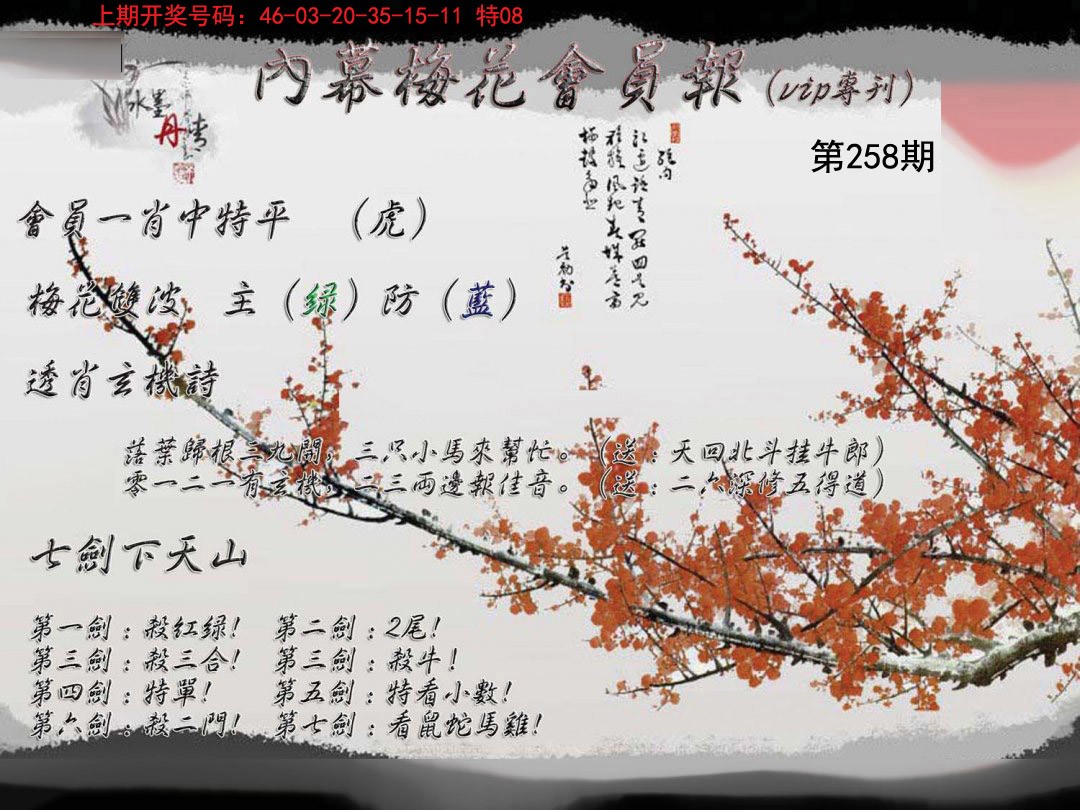 上期开奖号码：46-03-20-35-15-11 特08
內幕梅花會員報（vip專刊）
水墨
丹情
第258期
會員一肖中特平 （虎）
梅花雙波 主（绿）防（藍）
透肖玄機詩
落葉歸根三九開，三只小馬來幫忙。（送：天四北斗挂牛郎）
零一二一有玄機，二三両邊報佳音。（送：二六深修五得道）
七劍下天山
第一劍：殺紅绿！ 第二劍：2尾！
第三劍：殺三合！ 第三劍：殺牛！
第四劍：特單！ 第五劍：特看小數！
第六劍：殺二門！ 第七劍：看鼠蛇馬雞！